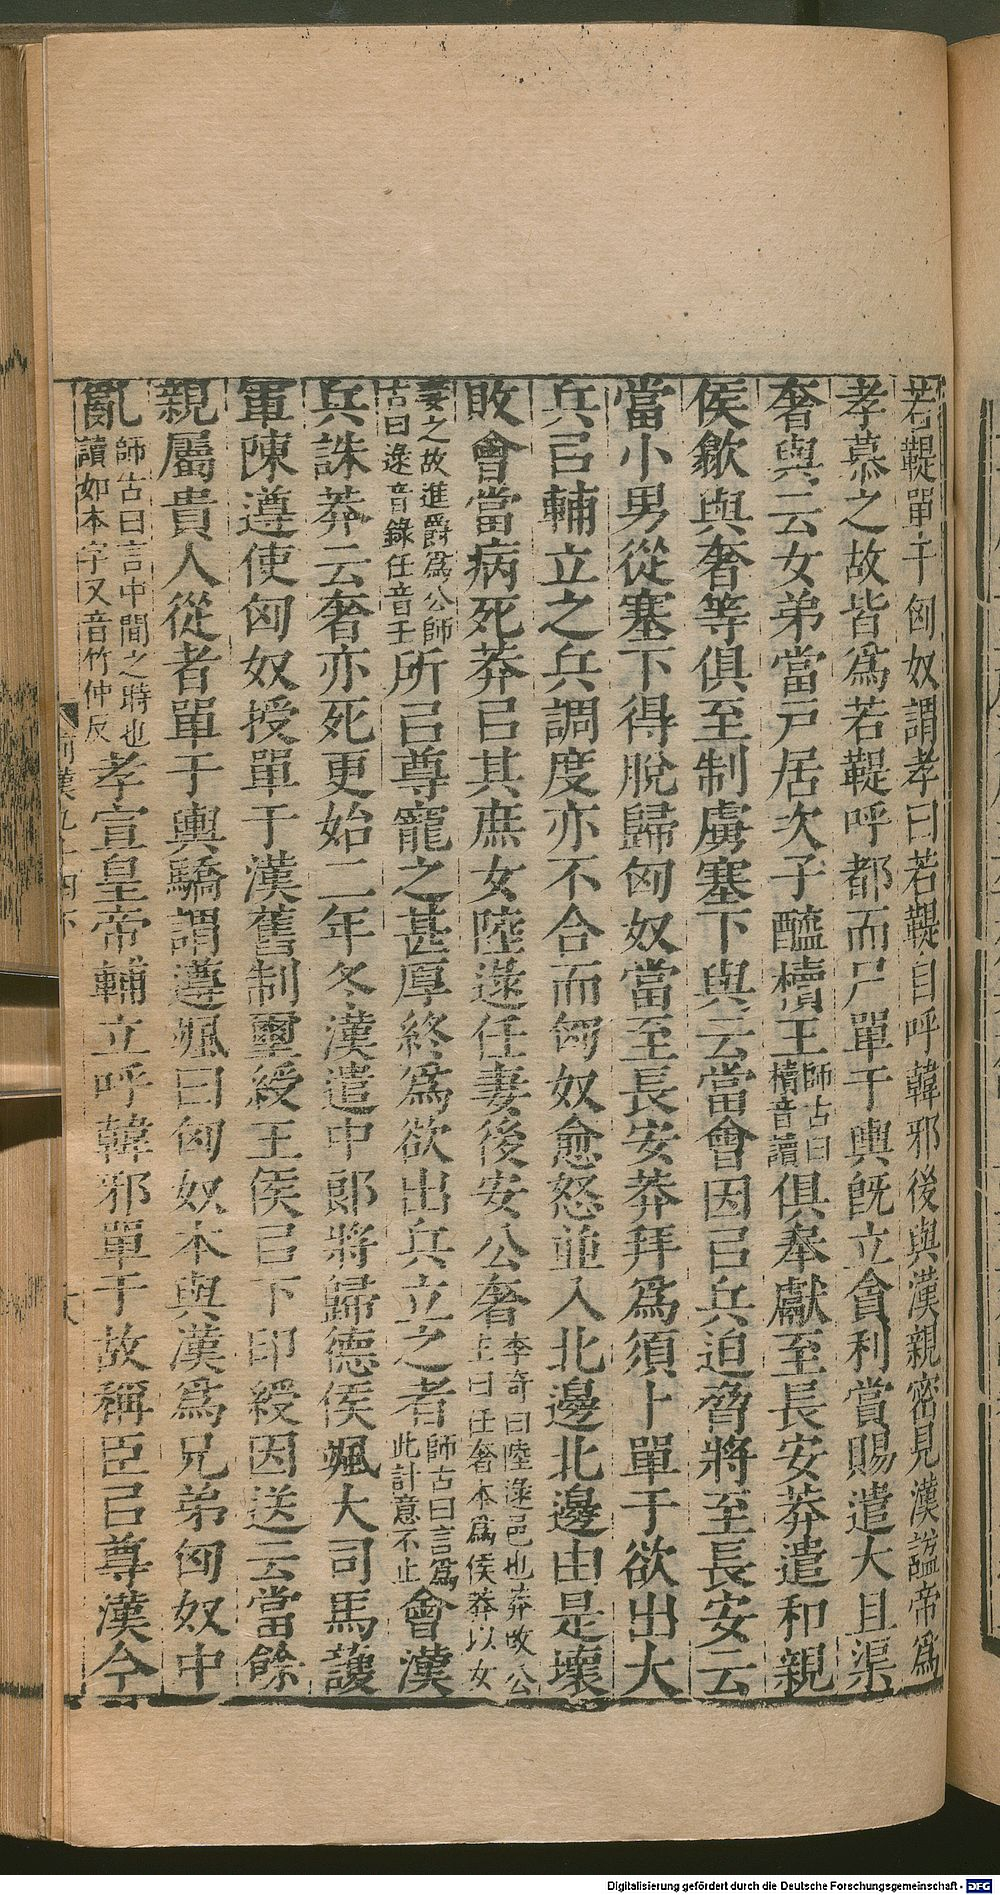 若鞮單于匈奴謂孝曰若鞮自呼韓邪後與漢親密見漢謚帝爲
孝慕之故皆爲若鞮呼都而尸單于輿旣立貪利賞賜遣大且渠
奢與云女弟當戸居次子醯櫝王師古曰櫝音讀俱奉獻至長安莽遣和親
侯歙與奢等俱至制虜塞下與云當會因㠯兵迫脅將至長安云
當小男從塞下得脫歸匈奴當至長安莽拜爲須卜單于欲出大
兵㠯輔立之兵調度亦不合而匈奴愈怒並入北邊北邊由是壞
敗會當病死莽㠯其庶女陸逯任妻後安公奢李奇曰陸逯邑也莽改公主曰任奢本爲侯莽以女
妻之故進爵爲公師古曰逯音錄任音壬所㠯尊寵之甚厚終爲欲出兵立之者師古曰言爲此計意不止會漢
兵誅莽云奢亦死更始二年冬漢遣中郎將歸德侯颯大司馬護
軍陳遵使匈奴授單于漢舊制璽綬王侯㠯下印綬因送云當餘
親屬貴人從者單于輿驕謂遵颯曰匈奴本與漢爲兄弟匈奴中
亂師古曰言中間之時也讀如本字又音竹仲反孝宣皇帝輔立呼韓邪單于故稱臣㠯尊漢今
前漢九十四下
Digitalisierung gefördert durch die Deutsche Forschungsgemeinschaft - DFG